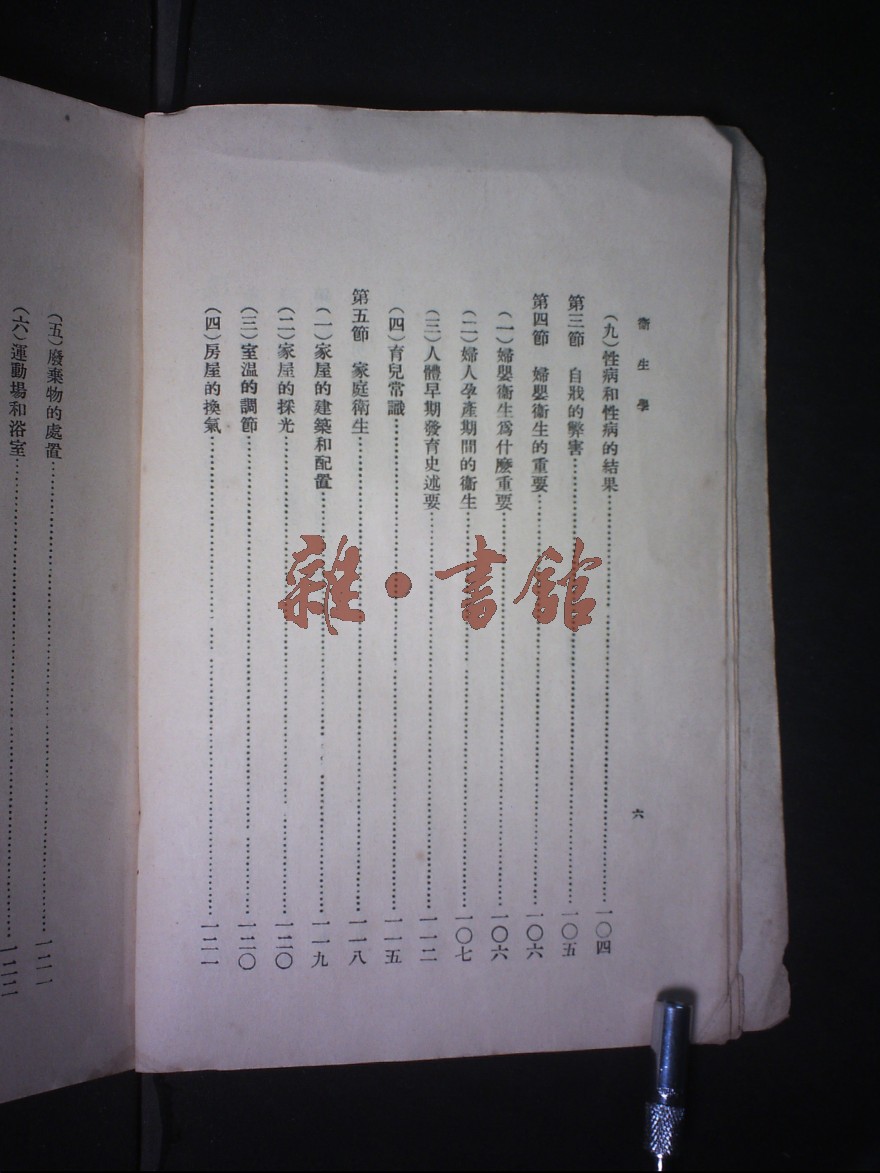 衛生學
六
(九)性病和性病的結果……一〇四
第三節 自戕的弊害……一〇五
第四節 婦嬰衛生的重要……一〇六
(一)婦嬰衛生爲什麼重要……一〇六
(二)婦人孕產期間的衛生……一〇七
(三)人體早期發育史述要……一一二
(四)育兒常識……一一五
第五節 家庭衛生……一一八
(一)家屋的建築和配置……一一九
(二)家屋的採光……一二〇
(三)室温的調節……一二〇
(四)房屋的換氣……一二一
(五)廢棄物的處置……一二一
(六)運動場和浴室……一二二
雜·書館